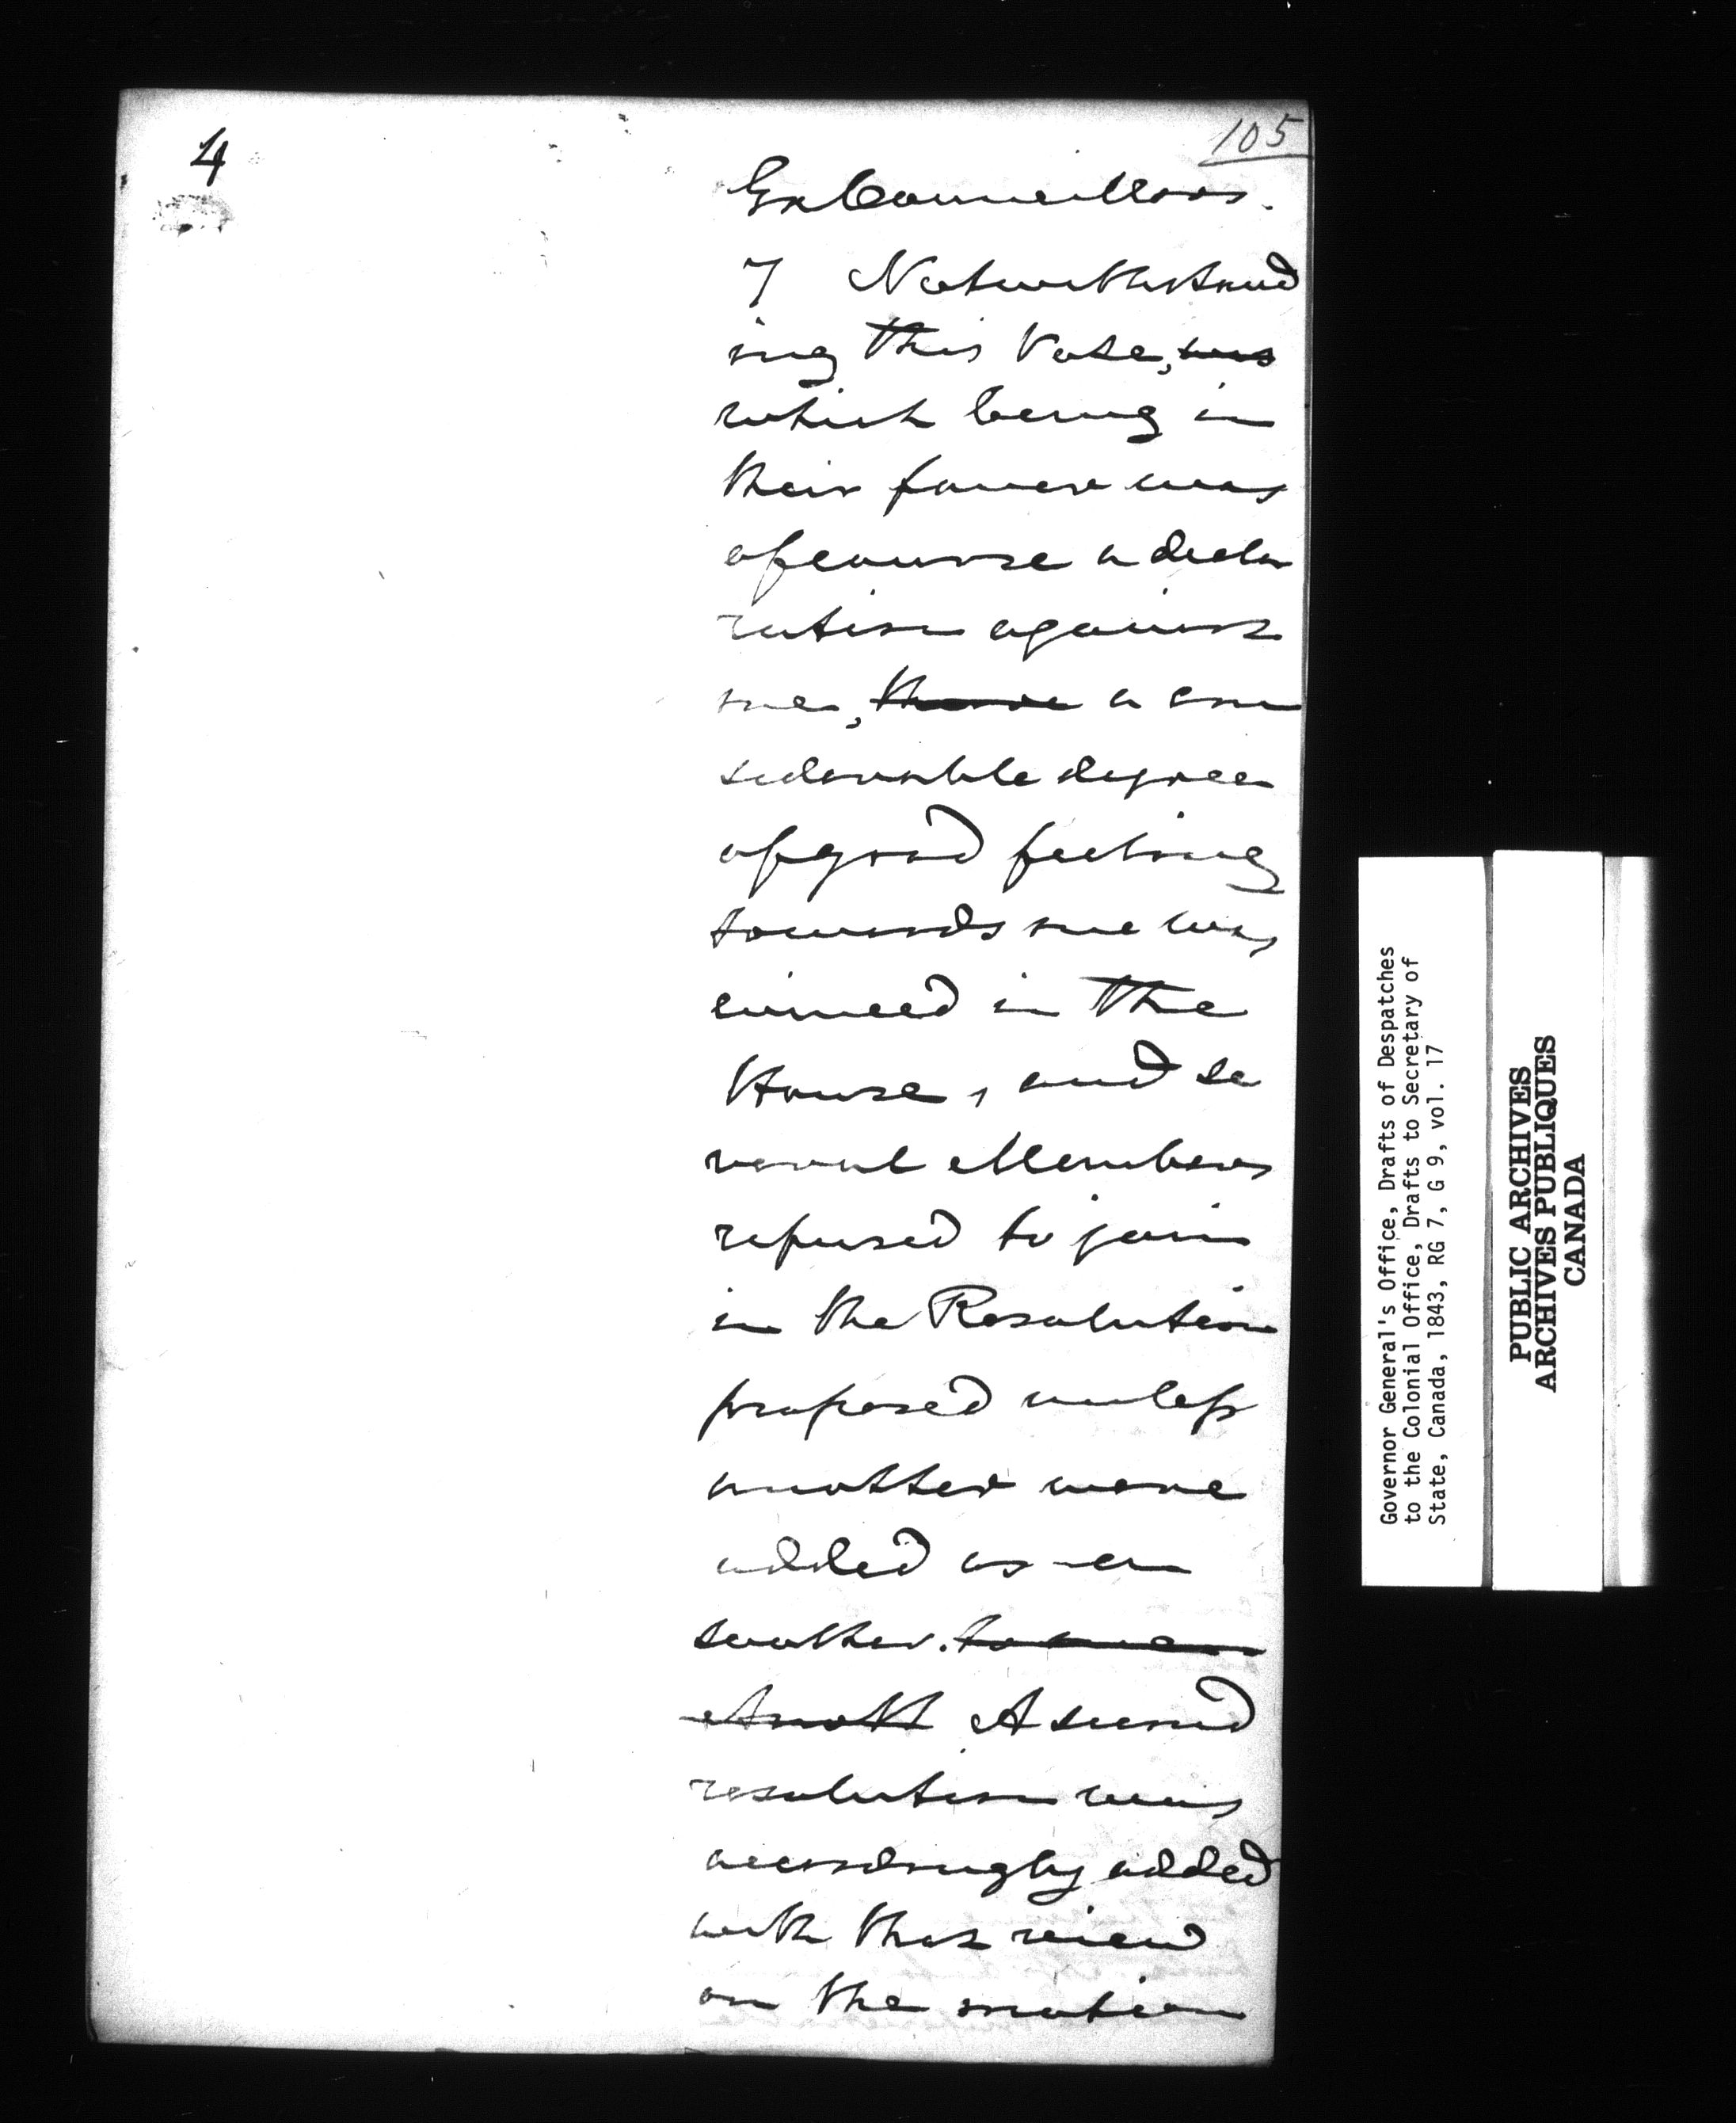 4
105
Ex Councillors.
7 Notwithstand
ing this Vote, was
which being in
their favor was
of course a decla
ration against
me, there a con
siderable degree
of good feeling
towards me was
evinced in the
House, and se
veral Members
refused to join
in the Resolution
proposed unless
another were
added as a
soother.
Anoth A second
resolution was
accordingly added
with that view
on the motion
Governor General's Office, Drafts of Despatches
to the Colonial Office, Drafts to Secretary of
State, Canada, 1843, RG 7, G 9, vol. 17
PUBLIC ARCHIVES
ARCHIVES PUBLIQUES
CANADA